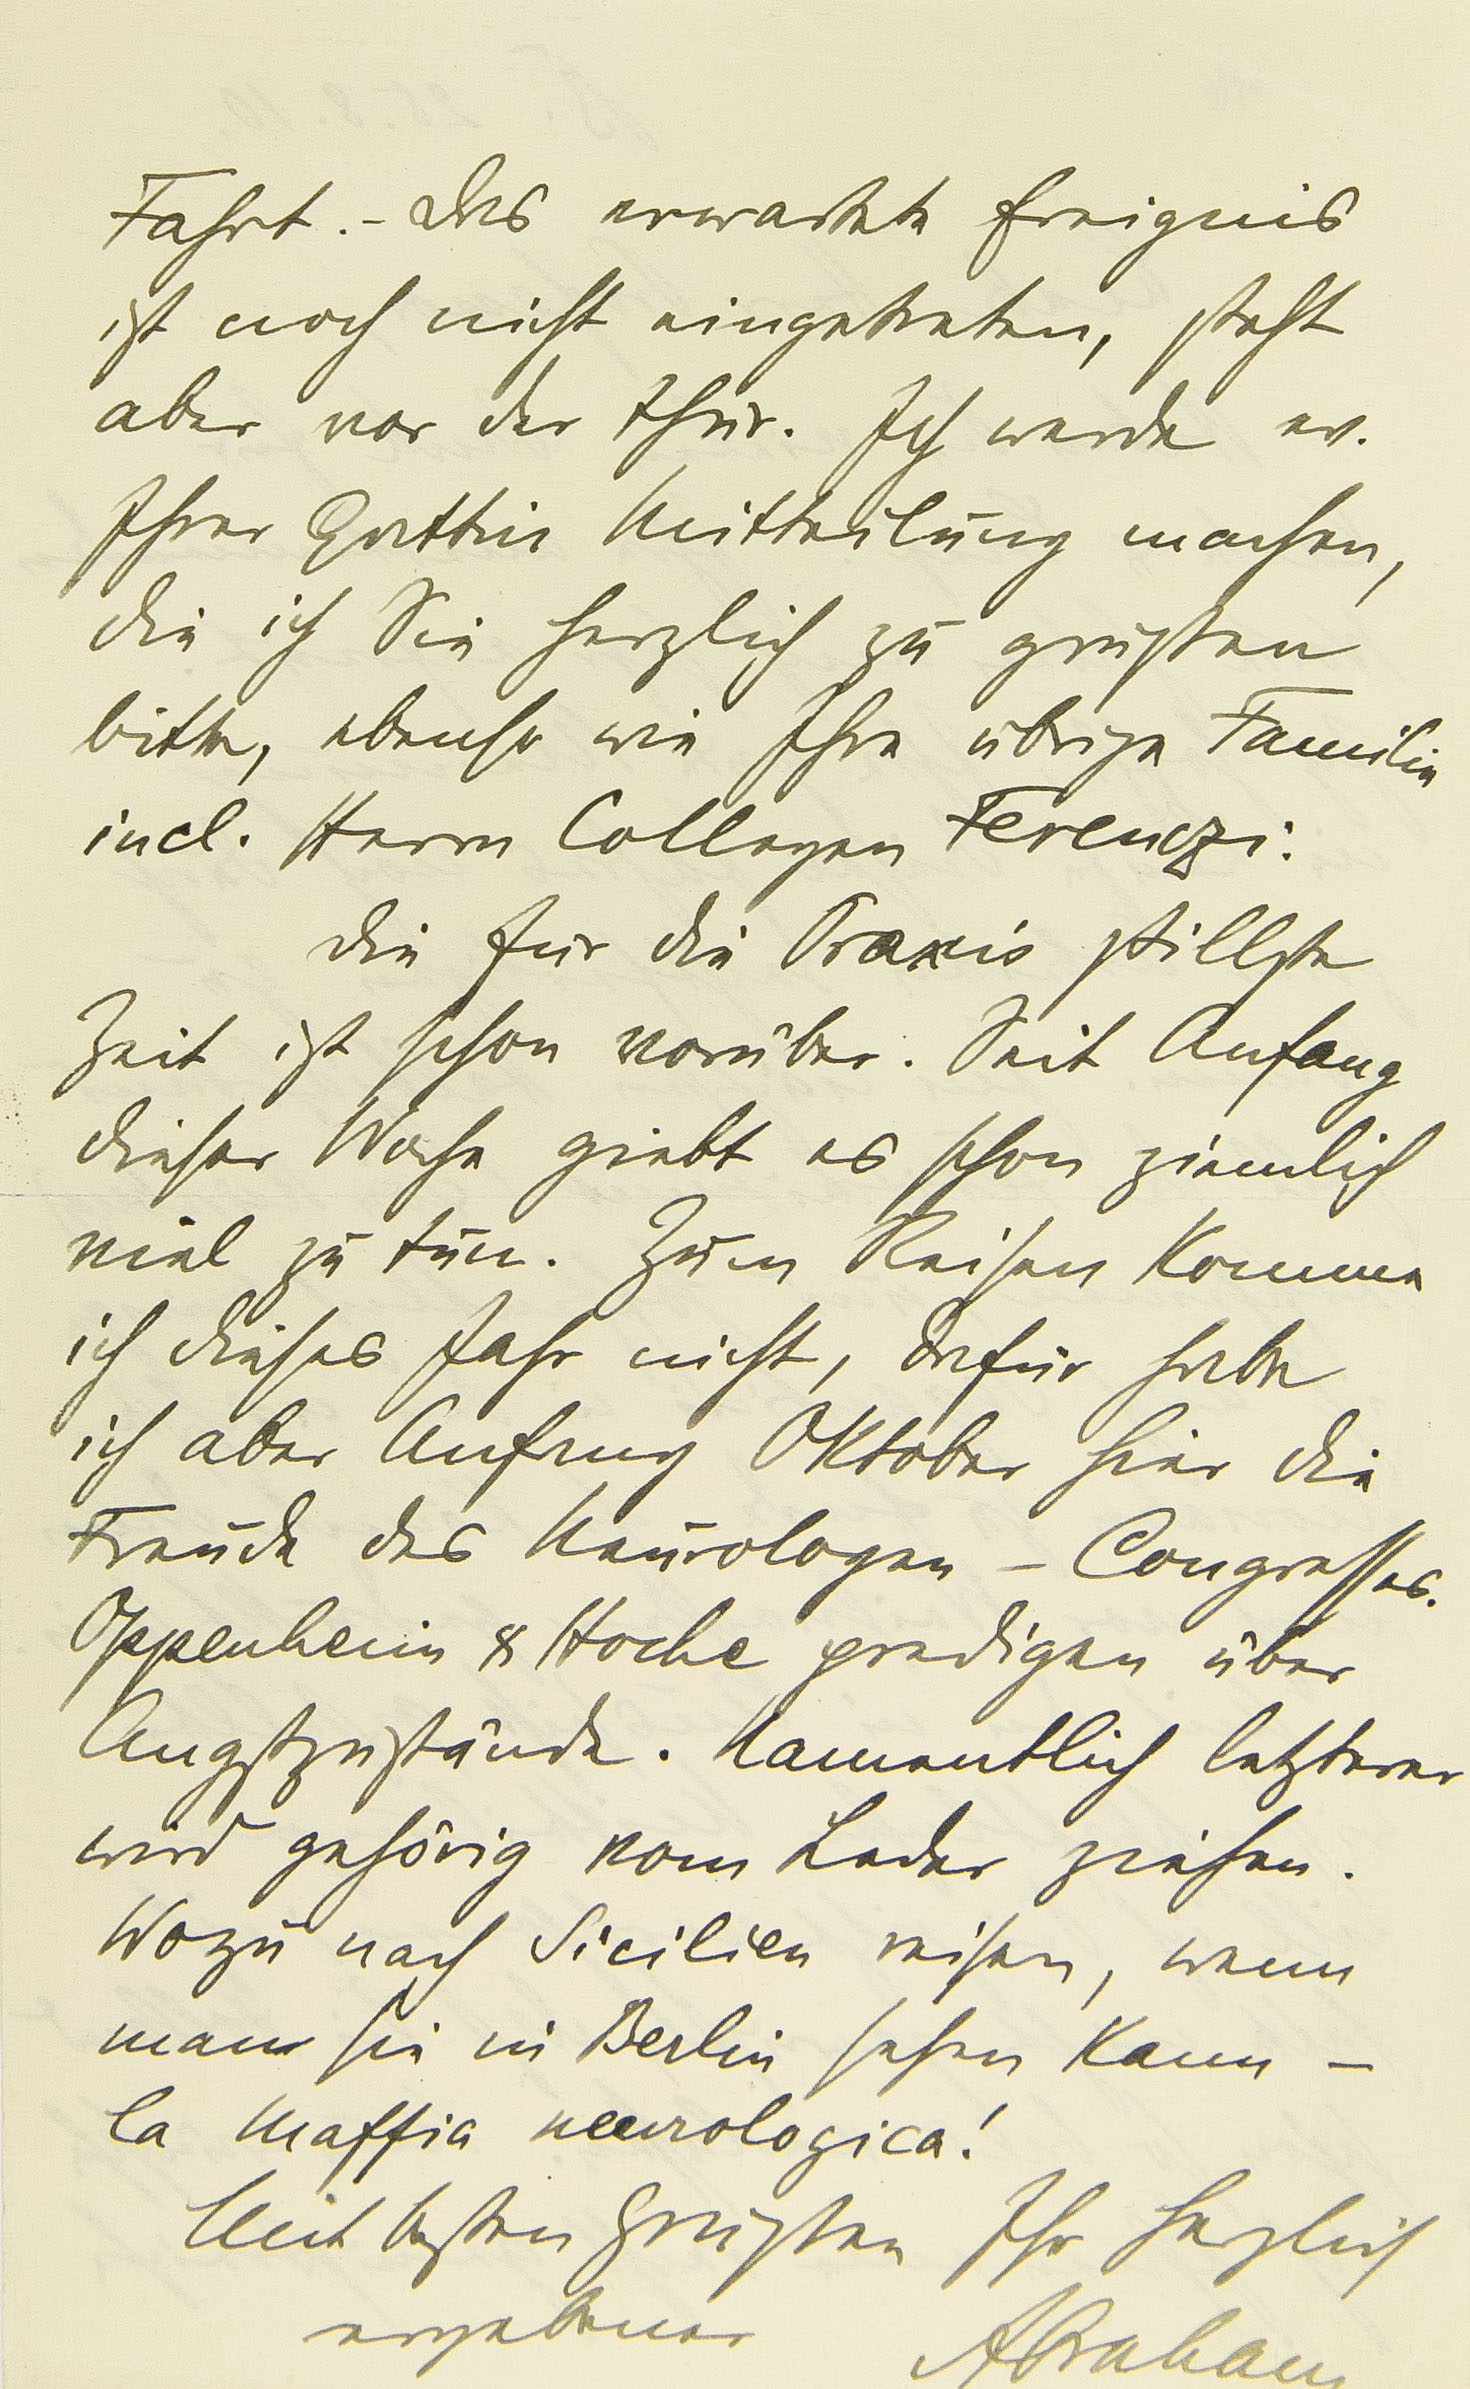 Fahrt. – Das erwartete Ereignis
ist noch nicht eingetreten, steht
aber vor der Thür. Ich werde ev.
Ihrer Gattin Mitteilung machen,
die ich Sie herzlich zu grüßen
bitte, ebenso wie Ihre übrige Familie
incl. Herrn Collegen Ferenczi.
Die für die Praxis stillste
Zeit ist schon vorüber. Seit Anfang
dieser Woche giebt es schon ziemlich
viel zu tun. Zum Reisen komme
ich dieses Jahr nicht, dafür habe
ich aber Anfang Oktober hier die
Freude des Neurologen – Congresses.
Oppenheim & Hoche predigen über
Angstzustände. Namentlich letzterer
wird gehörig vom Leder ziehen.
Wozu nach Sicilien reisen, wenn
man sie in Berlin sehen kann –
la maffia neurologica!
Mit besten Grüßen Ihr herzlich
ergebener Abraham